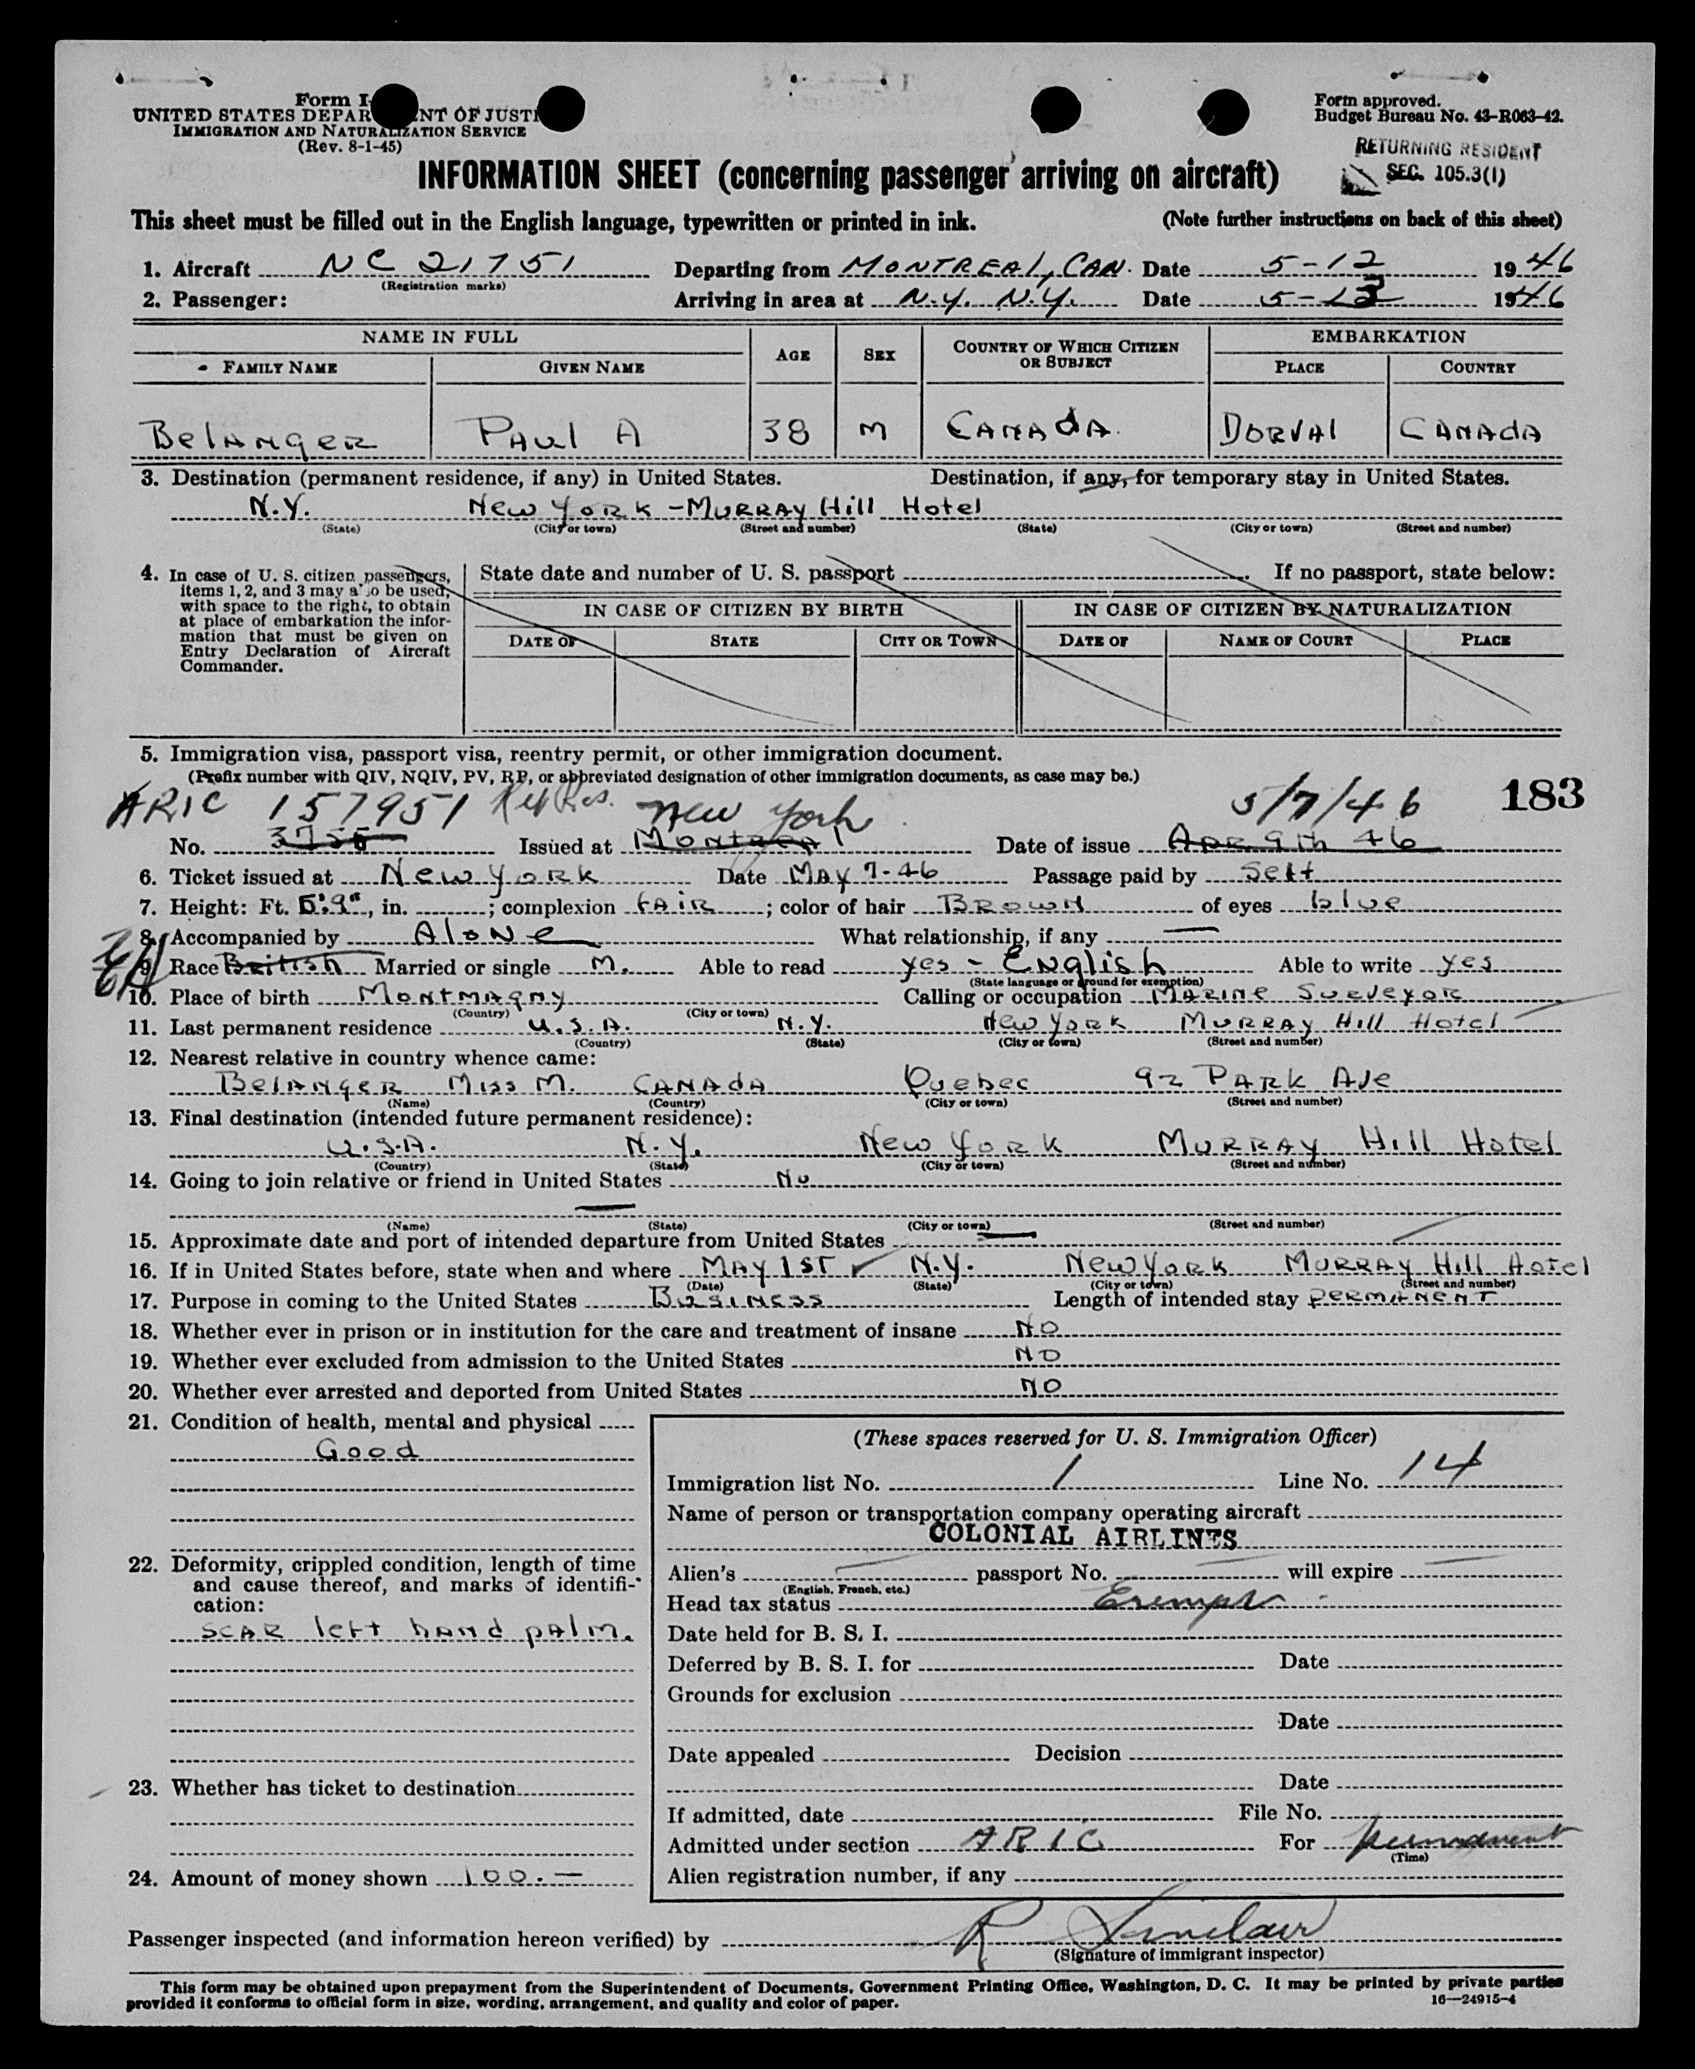 Form I-
UNITED STATES DEPAR NT OF JUSTI
IMMIGRATION AND NATURALIZATION SERVICE
(Rev. 8-1-45)
Form approved.
Budget Bureau No. 43-R063-42.
RETURNING RESIDENT
SEC. 105.3(1)
INFORMATION SHEET (concerning passenger arriving on aircraft)
This sheet must be filled out in the English language, typewritten or printed in ink. (Note further instructions on back of this sheet)
1. Aircraft NC 21751 Departing from MONTREAL, CAN. Date 5-12 1946
(Registration marks)
2. Passenger: Arriving in area at N.Y. N.Y. Date 5-13 1946
NAME IN FULL AGE SEX COUNTRY OF WHICH CITIZEN OR SUBJECT EMBARKATION
FAMILY NAME GIVEN NAME PLACE COUNTRY
BelANgeR PAUl A 38 M CANAdA. DORVAl CANAdA
3. Destination (permanent residence, if any) in United States. Destination, if any, for temporary stay in United States.
N.Y. New YORK - MURRAY Hill Hotel
(State) (City or town) (Street and number) (State) (City or town) (Street and number)
4. In case of U. S. citizen passengers, items 1, 2, and 3 may also be used, with space to the right, to obtain at place of embarkation the information that must be given on Entry Declaration of Aircraft Commander.
State date and number of U. S. passport . If no passport, state below:
IN CASE OF CITIZEN BY BIRTH IN CASE OF CITIZEN BY NATURALIZATION
DATE OF STATE CITY OR TOWN DATE OF NAME OF COURT PLACE
5. Immigration visa, passport visa, reentry permit, or other immigration document.
(Prefix number with QIV, NQIV, PV, RP, or abbreviated designation of other immigration documents, as case may be.)
ARIC 157951 Ret Res. New York 5/7/46 183
No. 3755 Issued at MONTREAL Date of issue APR 9th 46
6. Ticket issued at New YORK Date MAY 7-46 Passage paid by Self
7. Height: Ft. 5'9", in. ; complexion FAIR ; color of hair BROWN of eyes blue
8. Accompanied by AloNe What relationship, if any —
9. Race British Married or single M. Able to read yes - ENglish Able to write yes
(State language or ground for exemption)
10. Place of birth MONTMAgNY Calling or occupation MARINE SURVEYOR
(Country) (City or town)
11. Last permanent residence U.S.A. N.Y. New YORK MURRAY Hill Hotel
(Country) (State) (City or town) (Street and number)
12. Nearest relative in country whence came:
BelANgeR Miss M. CANAdA Quebec 92 PARK Ave
(Name) (Country) (City or town) (Street and number)
13. Final destination (intended future permanent residence):
U.S.A. N.Y. New YORK MURRAY Hill Hotel
(Country) (State) (City or town) (Street and number)
14. Going to join relative or friend in United States No
—
(Name) (State) (City or town) (Street and number)
15. Approximate date and port of intended departure from United States —
16. If in United States before, state when and where MAY 1ST ✓ N.Y. New YORK MURRAY Hill Hotel
(Date) (State) (City or town) (Street and number)
17. Purpose in coming to the United States BUSINESS Length of intended stay PERMANENT
18. Whether ever in prison or in institution for the care and treatment of insane NO
19. Whether ever excluded from admission to the United States NO
20. Whether ever arrested and deported from United States NO
21. Condition of health, mental and physical
Good
22. Deformity, crippled condition, length of time
and cause thereof, and marks of identifi-
cation:
SCAR left hand palm.
23. Whether has ticket to destination
24. Amount of money shown 100.—
(These spaces reserved for U. S. Immigration Officer)
Immigration list No. 1 Line No. 14
Name of person or transportation company operating aircraft
COLONIAL AIRLINES
Alien's — passport No. — will expire —
(English, French, etc.)
Head tax status Exempt
Date held for B. S. I.
Deferred by B. S. I. for Date
Grounds for exclusion
Date
Date appealed Decision
Date
If admitted, date File No.
Admitted under section ARIC For permanent
(Time)
Alien registration number, if any
Passenger inspected (and information hereon verified) by R Sinclair
(Signature of immigrant inspector)
This form may be obtained upon prepayment from the Superintendent of Documents, Government Printing Office, Washington, D. C. It may be printed by private parties
provided it conforms to official form in size, wording, arrangement, and quality and color of paper. 16—24915-4